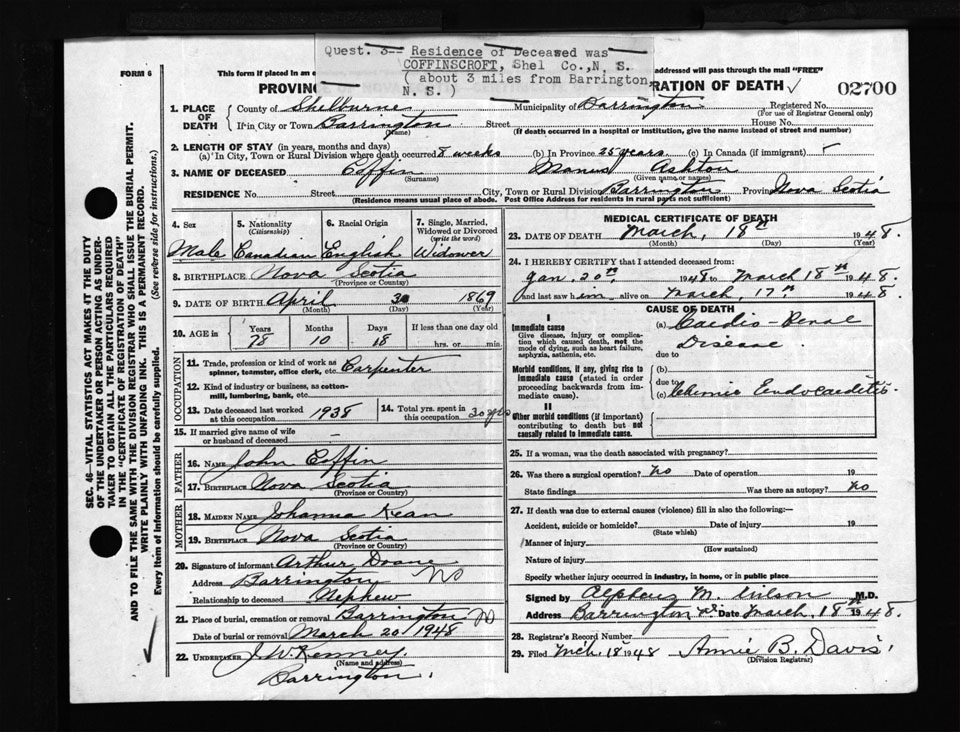 Quest. 3-- Residence of Deceased was
COFFINSCROFT, Shel Co., N. S.
( about 3 miles from Barrington,
N. S. )
FORM 6
This form if placed in an e
addressed will pass through the mail "FREE"
PROVINC
RATION OF DEATH
02700
1. PLACE OF DEATH
County of Shelburne
Municipality of Barrington
Registered No.
(For use of Registrar General only)
If in City or Town Barrington
(Name)
Street
House No.
(If death occurred in a hospital or institution, give the name instead of street and number)
2. LENGTH OF STAY (in years, months and days)
(a) In City, Town or Rural Division where death occurred 8 weeks (b) In Province 25 years (c) In Canada (if immigrant)
3. NAME OF DECEASED Coffin Manus Ashton
(Surname) (Given name or names)
RESIDENCE No. Street City, Town or Rural Division Barrington Province Nova Scotia
(Residence means usual place of abode. Post Office Address for residents in rural parts not sufficient)
4. Sex
Male
5. Nationality
(Citizenship)
Canadian
6. Racial Origin
English
7. Single, Married,
Widowed or Divorced
(write the word)
Widower
8. BIRTHPLACE Nova Scotia
(Province or Country)
9. DATE OF BIRTH April 30 1869
(Month) (Day) (Year)
10. AGE in
Years Months Days If less than one day old
78 10 18 hrs. or min.
OCCUPATION
11. Trade, profession or kind of work as
spinner, teamster, office clerk, etc. Carpenter
12. Kind of industry or business, as cotton-
mill, lumbering, bank, etc.
13. Date deceased last worked
at this occupation 1938
14. Total yrs. spent in
this occupation 30 yrs
15. If married give name of wife
or husband of deceased —
FATHER
16. NAME John Coffin
17. BIRTHPLACE Nova Scotia
(Province or Country)
MOTHER
18. MAIDEN NAME Johanna Kean
19. BIRTHPLACE Nova Scotia
(Province or Country)
20. Signature of informant Arthur Doane
Address Barrington NS
Relationship to deceased Nephew
21. Place of burial, cremation or removal Barrington NS
Date of burial or removal March 20/1948
22. UNDERTAKER J. W. Kenney
(Name and address)
Barrington.
MEDICAL CERTIFICATE OF DEATH
23. DATE OF DEATH March, 18th 1948.
(Month) (Day) (Year)
24. I HEREBY CERTIFY that I attended deceased from:
Jan. 20th 1948 to March 18th 1948.
and last saw him alive on March, 17th 1948
CAUSE OF DEATH
I
Immediate cause
Give disease, injury or complica-
tion which caused death, not the
mode of dying, such as heart failure,
asphyxia, asthenia, etc.
(a) Cardio-Renal
Disease
due to
Morbid conditions, if any, giving rise to
immediate cause (stated in order
proceeding backwards from im-
mediate cause).
(b)
due to
(c) Chronic Endocarditis.
II
Other morbid conditions (if important)
contributing to death but not
causally related to immediate cause.
25. If a woman, was the death associated with pregnancy?
26. Was there a surgical operation? no Date of operation 19
State findings Was there an autopsy? no
27. If death was due to external causes (violence) fill in also the following:—
Accident, suicide or homicide? Date of injury 19
(State which)
Manner of injury
(How sustained)
Nature of injury
Specify whether injury occurred in industry, in home, or in public place
Signed by Alpheus M. Wilson M.D.
Address Barrington, N.S. Date March, 18th 1948.
28. Registrar's Record Number
29. Filed Mch. 18 1948 Annie B. Davis.
(Division Registrar)
SEC. 46—VITAL STATISTICS ACT MAKES IT THE DUTY
OF THE UNDERTAKER OR PERSON ACTING AS UNDER-
TAKER TO OBTAIN ALL THE PARTICULARS REQUIRED
IN THE "CERTIFICATE OF REGISTRATION OF DEATH"
AND TO FILE THE SAME WITH THE DIVISION REGISTRAR WHO SHALL ISSUE THE BURIAL PERMIT.
WRITE PLAINLY WITH UNFADING INK. THIS IS A PERMANENT RECORD.
Every item of Information should be carefully supplied. (See reverse side for instructions.)